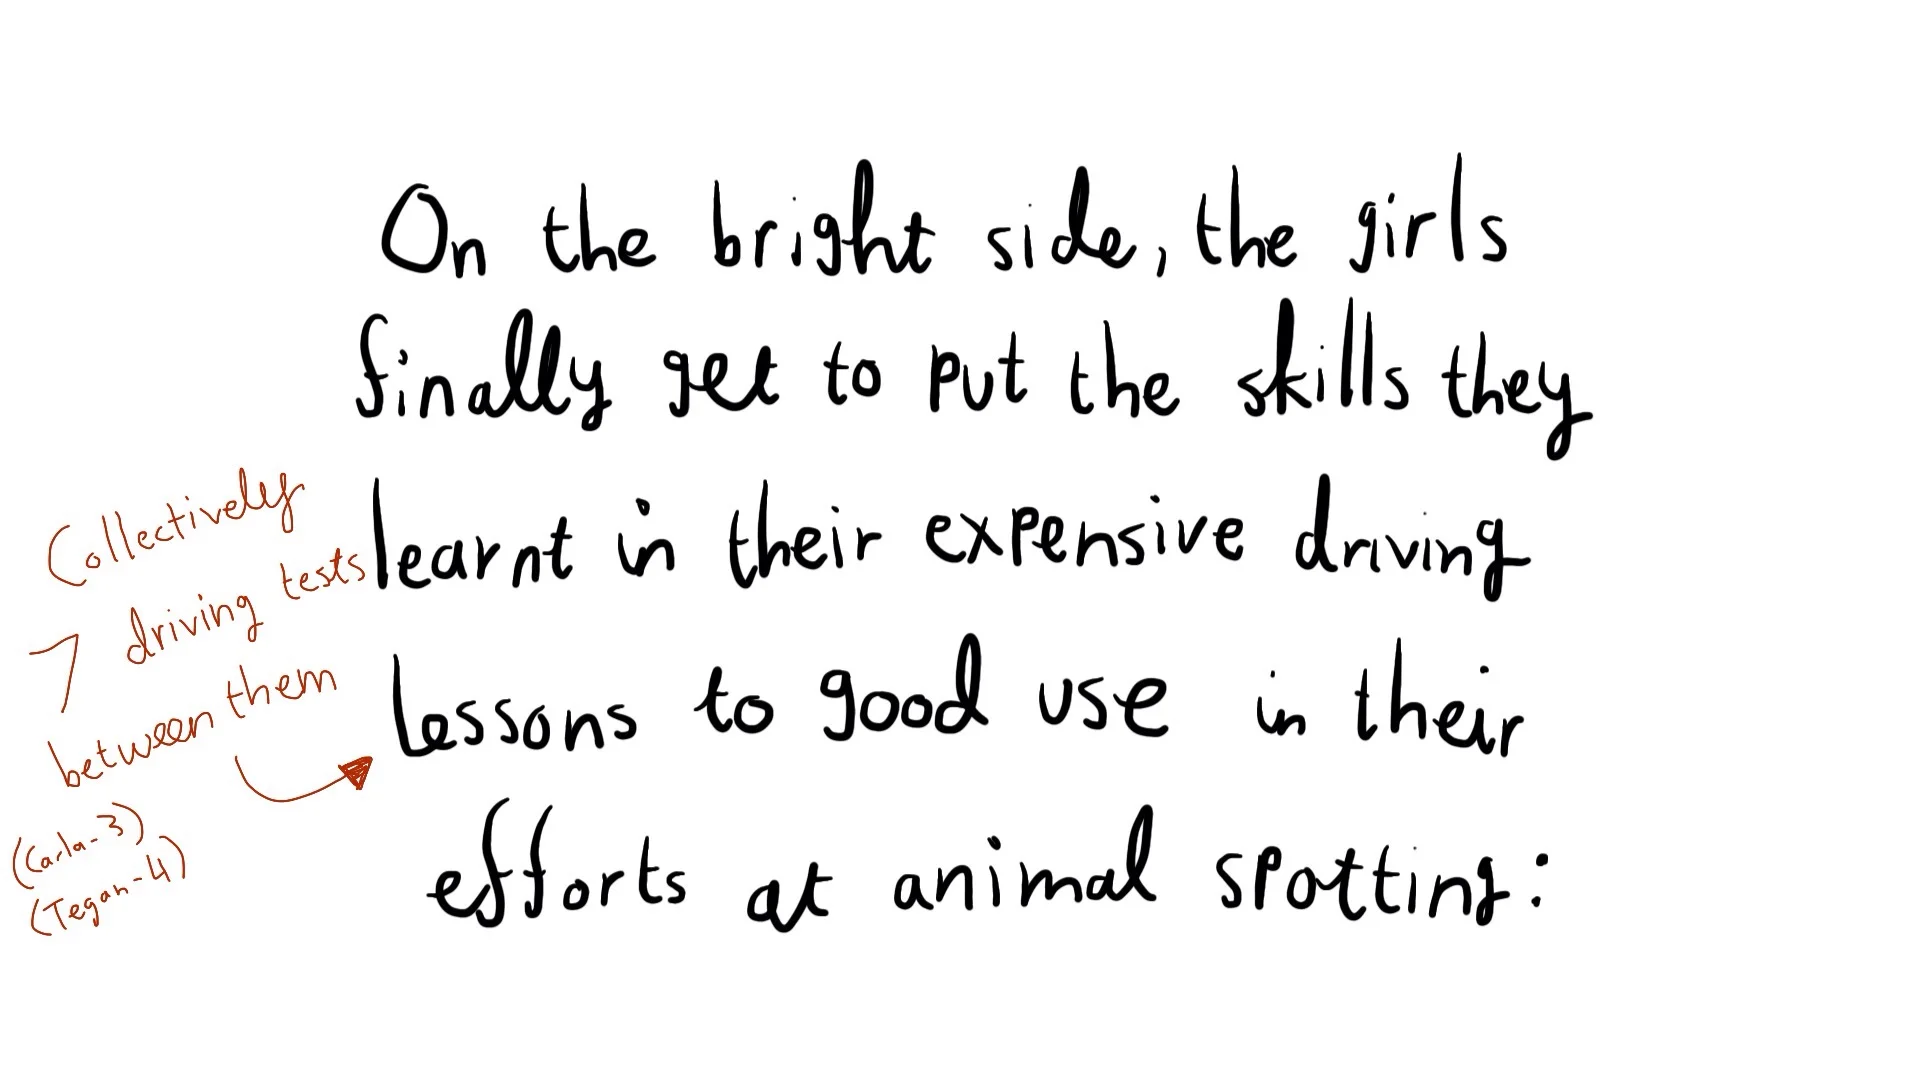 On the bright side, the girls
finally get to put the skills they
learnt in their expensive driving
lessons to good use in their
efforts at animal spotting:
Collectively
7 driving tests
between them
(Carla-3)
(Tegan-4)